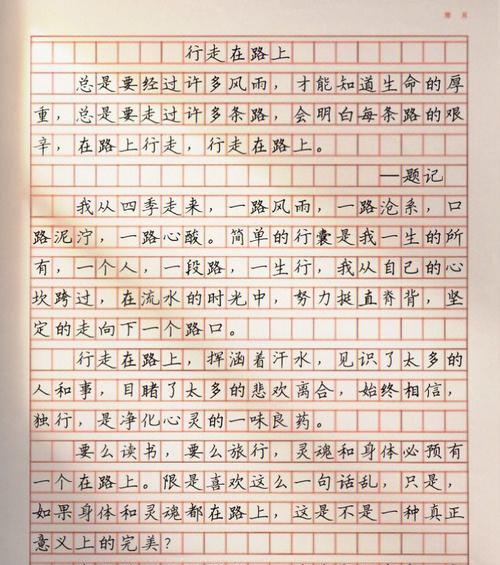 行走在路上
总是要经过许多风雨，才能知道生命的厚
重，总是要走过许多条路，会明白每条路的艰
辛，在路上行走，行走在路上。
—题记
我从四季走来，一路风雨，一路沧系，口
路泥泞，一路心酸。简单的行囊是我一生的所
有，一个人，一段路，一生行，我从自己的心
坎跨过，在流水的时光中，努力挺直脊背，坚
定的走向下一个路口。
行走在路上，挥涵着汗水，见识了太多的
人和事，目睹了太多的悲欢离合，始终相信，
独行，是净化心灵的一味良药。
要么读书，要么旅行，灵魂和身体必预有
一个在路上。限是喜欢这么一句话乱，只是，
如果身体和灵魂都在路上，这是不是一种真正
意义上的完美？